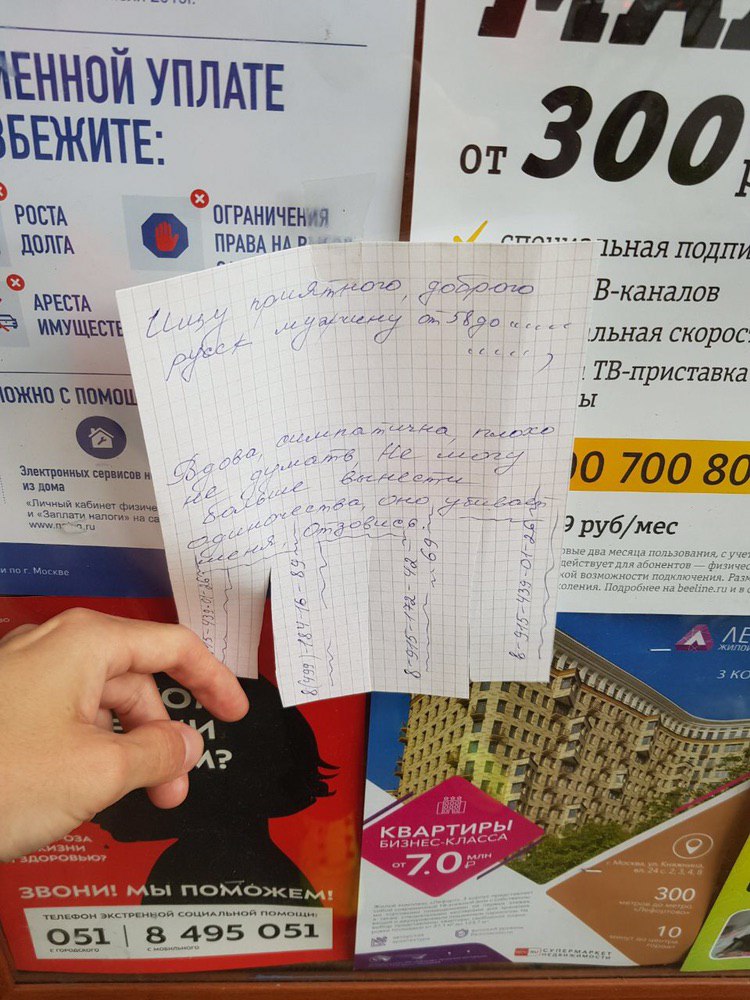 МЕННОЙ УПЛАТЕ
ЗБЕЖИТЕ:
РОСТА
ДОЛГА
ОГРАНИЧЕНИЯ
ПРАВА НА
АРЕСТА
ИМУЩЕСТВ
МОЖНО С ПОМОЩ
Электронных сервисов н
из дома
«Личный кабинет физиче
и «Заплати налоги» на са
по г. Москве
от 300
альная подпи
В-каналов
альная скорос
ТВ-приставка
ы
00 700 80
9 руб/мес
овые два месяца пользования, с учет
действует для абонентов — физичес
кой возможности подключения. Разм
коления. Подробнее на beeline.ru и в
Ищу приятного, доброго
русск мужчину от 58 до
Вдова, симпатична, плохо
не думать Не могу
больше вынести
одиночества, оно убивает
меня, отзовись!
15-439-01-26
8(499)-184-16-89
8-915-172-42-69
8-915-439-01-26
И?
ОЗА
ЖИЗНИ
ЗДОРОВЬЮ?
ЗВОНИ! МЫ ПОМОЖЕМ!
ТЕЛЕФОН ЭКСТРЕННОЙ СОЦИАЛЬНОЙ ПОМОЩИ:
051 8 495 051
С ГОРОДСКОГО С МОБИЛЬНОГО
ЛЕ
ЖИЛОЙ
3 КО
КВАРТИРЫ
БИЗНЕС-КЛАССА
от 7.0 МЛН ₽
г. Москва, ул. Княжнина,
вл. 24 с. 2, 3, 4, 8
300
метров до метро
«Лефортово»
10
минут до центра
СУПЕРМАРКЕТ
НЕДВИЖИМОСТИ